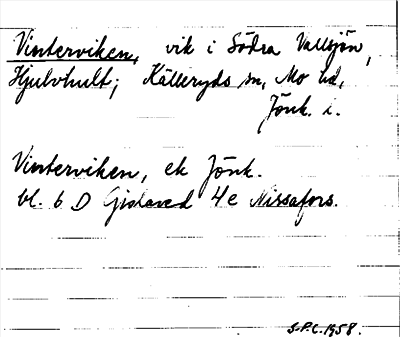 Vinterviken, vik i Södra Vallsjön,
Hjulvhult; Källeryds sn, Mo hd,
Jönk. l.
Vinterviken, ek Jönk.
bl. 6 D Gislaved 4e Nissafors.
S.P.C. 1958.